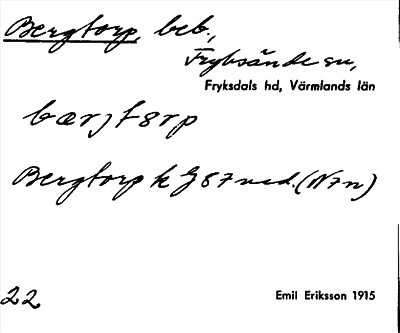 Bergtorp, beb.,
Fryksände sn,
Fryksdals hd, Värmlands län
bærjtorp
Bergtorp k G87
22
Emil Eriksson 1915